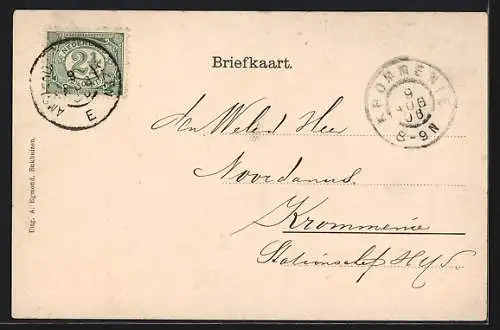 NEDERLAND
2½
AMST
E
Briefkaart.
KROMMENIE
9
06
8-9N
den Weled Heer
Noordanus
Krommenie
Stationschef
Uitg. A. Egmond, Enkhuizen.